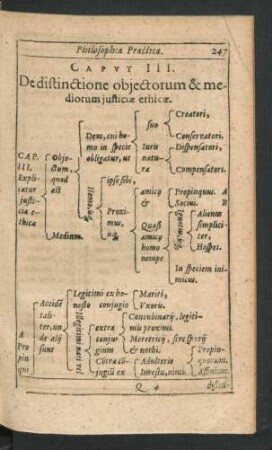 Philosophiæ Practicæ. 247
CAPVT III.
De distinctione objectorum & me-
diorum justiciæ ethicæ.
CAP.
III.
Expli-
catur
justi-
cia e-
thica
Obje-
ctum,
quod
est
Medium.
Deus, cui ho-
mo in specie
obligatur, ut
suo
Creatori,
Conservatori.
Juris
natu-
ræ
Dispensatori,
Compensatori.
Homo,
ipse sibi,
Proxi-
mus,
amicꝰ
&
Propinquus. A
Socius. B
Quasi
amicꝰ
homo
nempe
Alienus
simplici-
ter,
Hospes.
In speciem ini-
micus.
A
Pro
pin
qui
Accidē
taliter,
de alij
sunt
Legitimi ex ho-
nesto conjugio
Mariti,
Vxores.
extra
conju-
gium
Concubinarij, legiti-
mis proximi.
Meretricij, sive spurij
& nothi.
Cōtra cō-
jugiū ex
Adulterio
Incestu,
Propin-
quorum,
Affinium.
Q 4